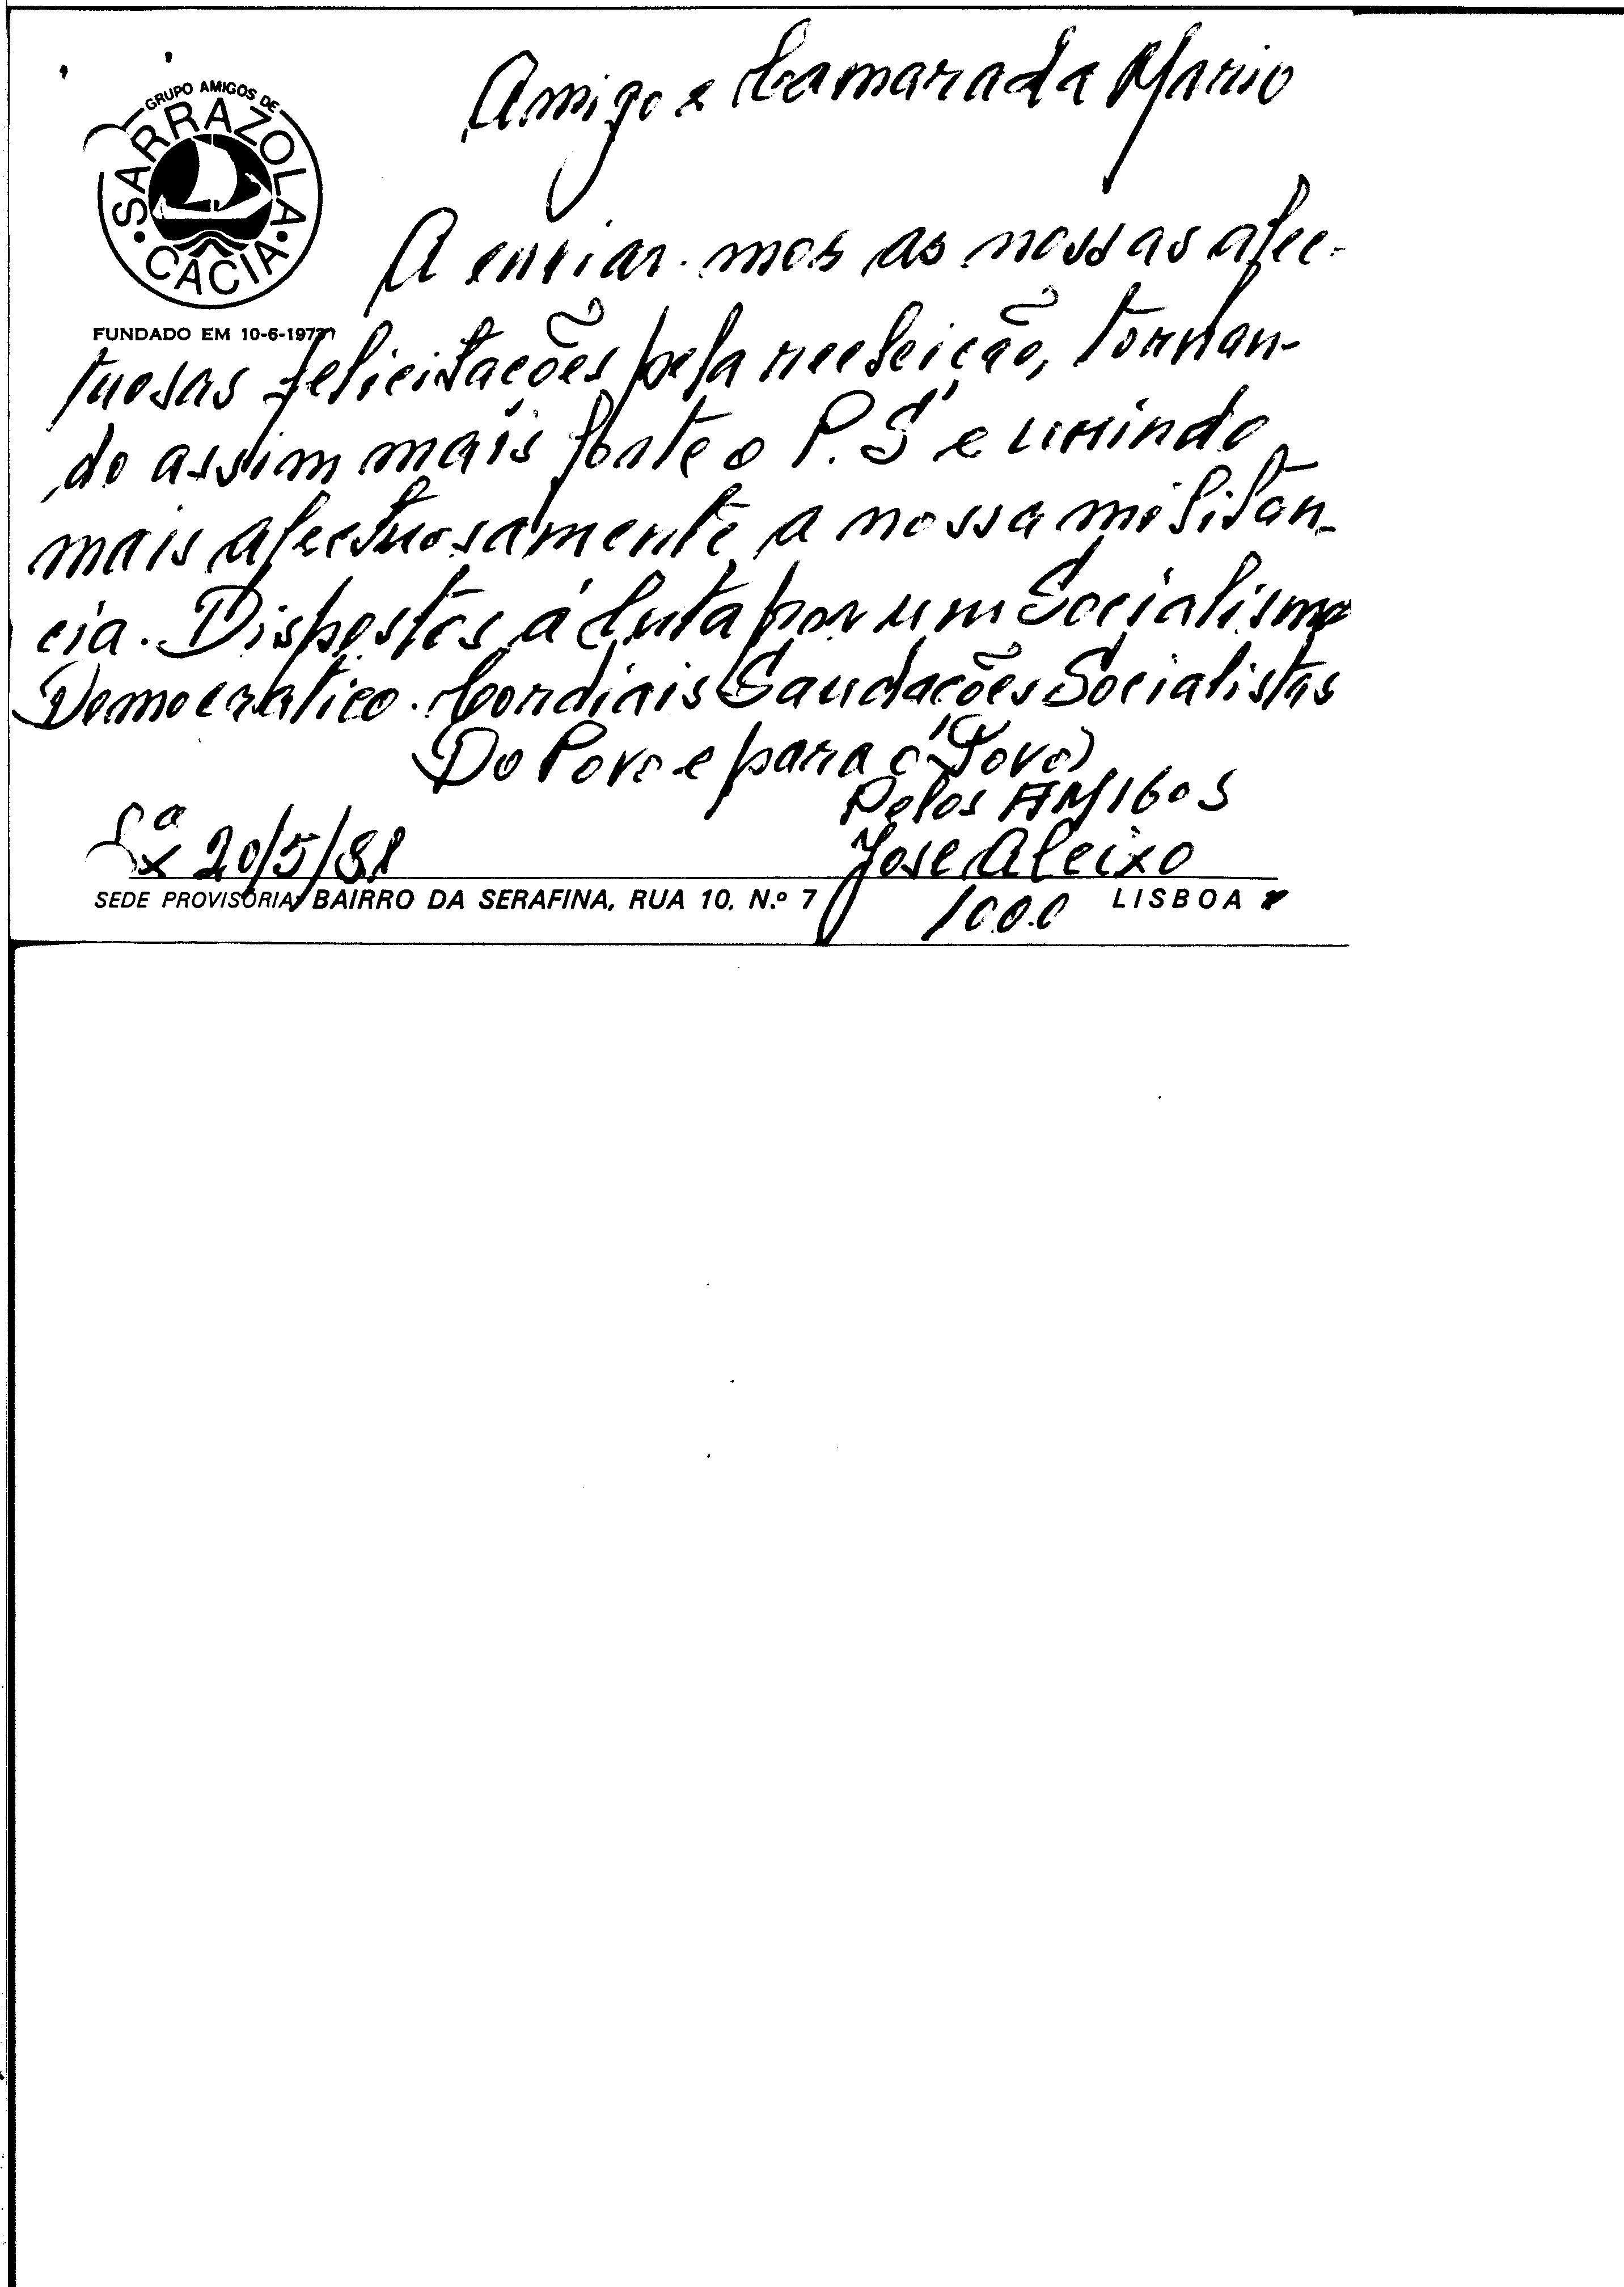 GRUPO AMIGOS DE
SARRAZOLA
CACIA
FUNDADO EM 10-6-197
Amigo e Camarada Mario
A enviar-mos as nossas afec-
tuosas felicitações pela reeleição, tornan-
do assim mais forte o P.S e unindo
mais afectuosamente a nossa militan-
cia. Dispostos á luta por um Socialismo
Democratico. Cordiais Saudações Socialistas
Do Povo e para o Povo
Pelos AMIGOS
Lxª 20/5/81
José Aleixo
SEDE PROVISÓRIA: BAIRRO DA SERAFINA, RUA 10, N.º 7
1000 LISBOA